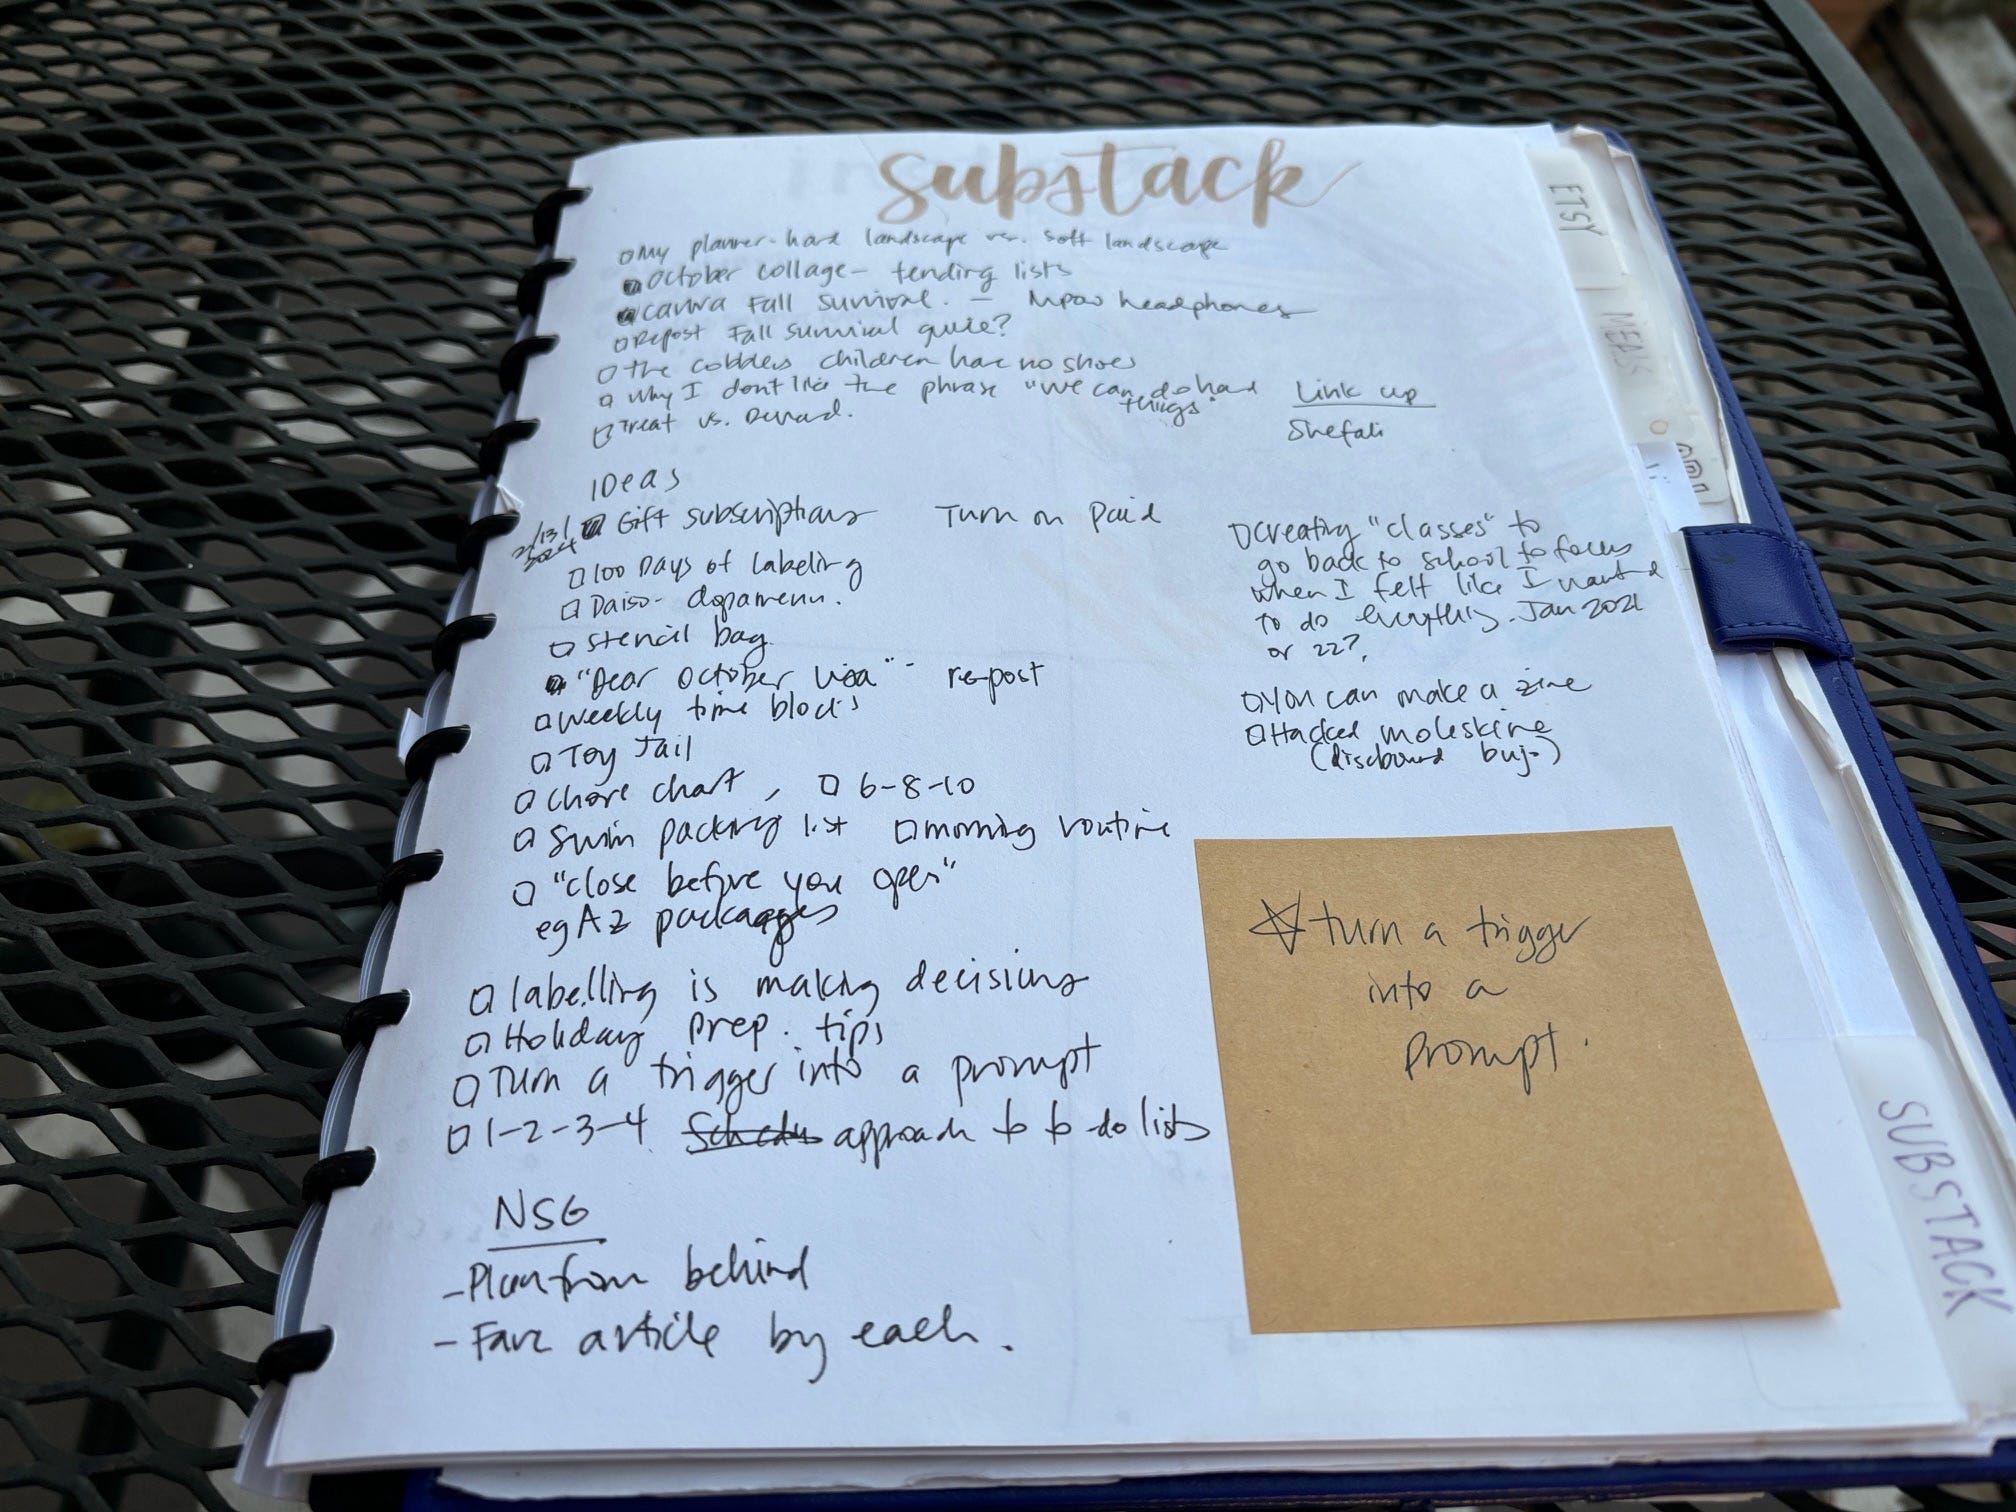 substack
My planner - hard landscape vs. soft landscape
October collage - tending lists
canva Fall Survival. - Mpow headphones
Repost Fall survival guie?
The cobblers children have no shoes
Why I dont like the phrase "We can do hard
things"
Treat vs. 
Link up
Shefali
IDeas
Gift subscriptions
Turn on paid
100 Days of labeling
Daiso - dopamenu.
stencil bag
"Dear October Lisa" - re-post
weekly time blocks
Toy Jail
chore chart, 6-8-10
Swim packing list morning routine
"close before you open"
eg AZ packages
labelling is making decisions
Holiday prep. tips
Turn a trigger into a prompt
1-2-3-4 approach to to-do lists
creating "classes" to
go back to school to focus
when I felt like I wanted
to do everything. Jan 2021
or 22?
You can make a zine
Hacked moleskine
(discbound bujo)
turn a trigger
into a
prompt.
NSG
- Plan from behind
- Fave article by each.
ETSY
MEDS
SUBSTACK